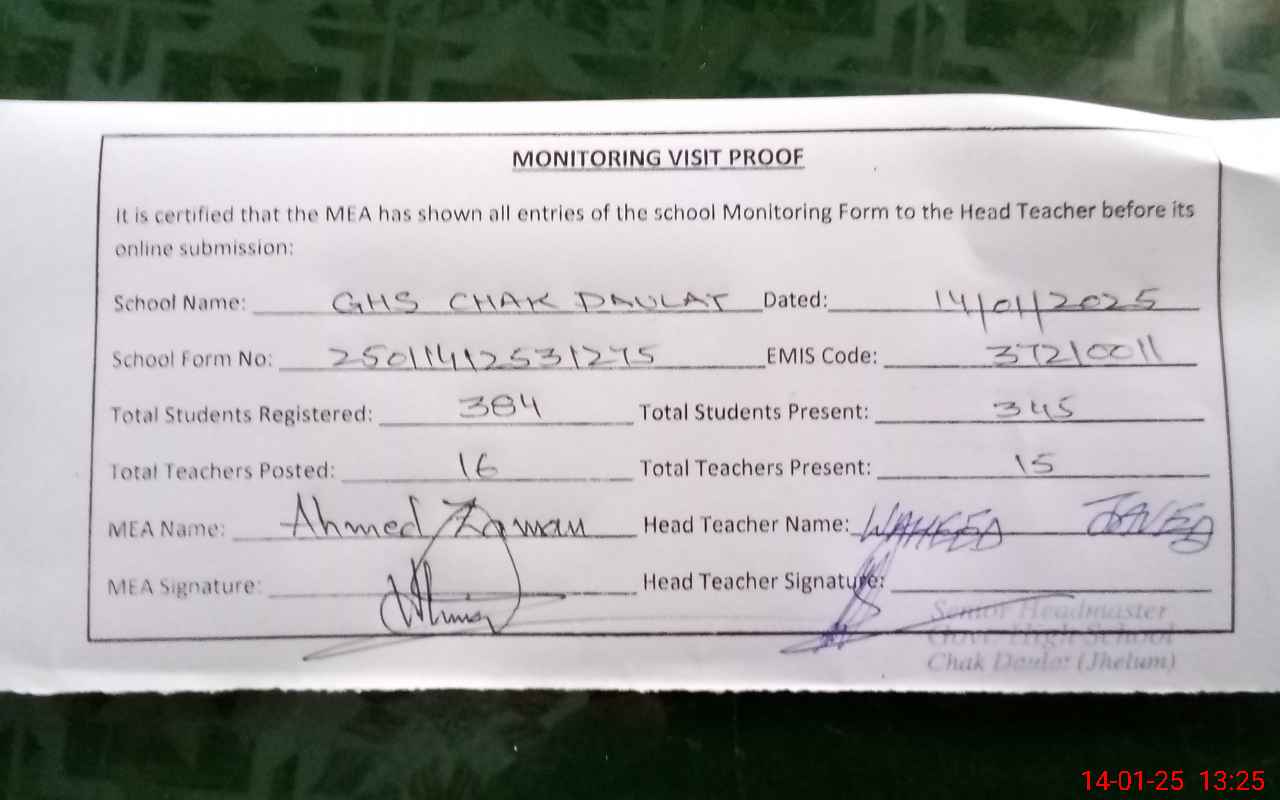 MONITORING VISIT PROOF
It is certified that the MEA has shown all entries of the school Monitoring Form to the Head Teacher before its
online submission:
School Name: GHS CHAK DAULAT Dated: 14/01/2025
School Form No: 25011412531275 EMIS Code: 37210011
Total Students Registered: 384 Total Students Present: 345
Total Teachers Posted: 16 Total Teachers Present: 15
MEA Name: Ahmed Zaman Head Teacher Name: WAHEED JAVED
MEA Signature: Head Teacher Signature:
Senior Headmaster
Govt. High School
Chak Daulat (Jhelum)
14-01-25 13:25